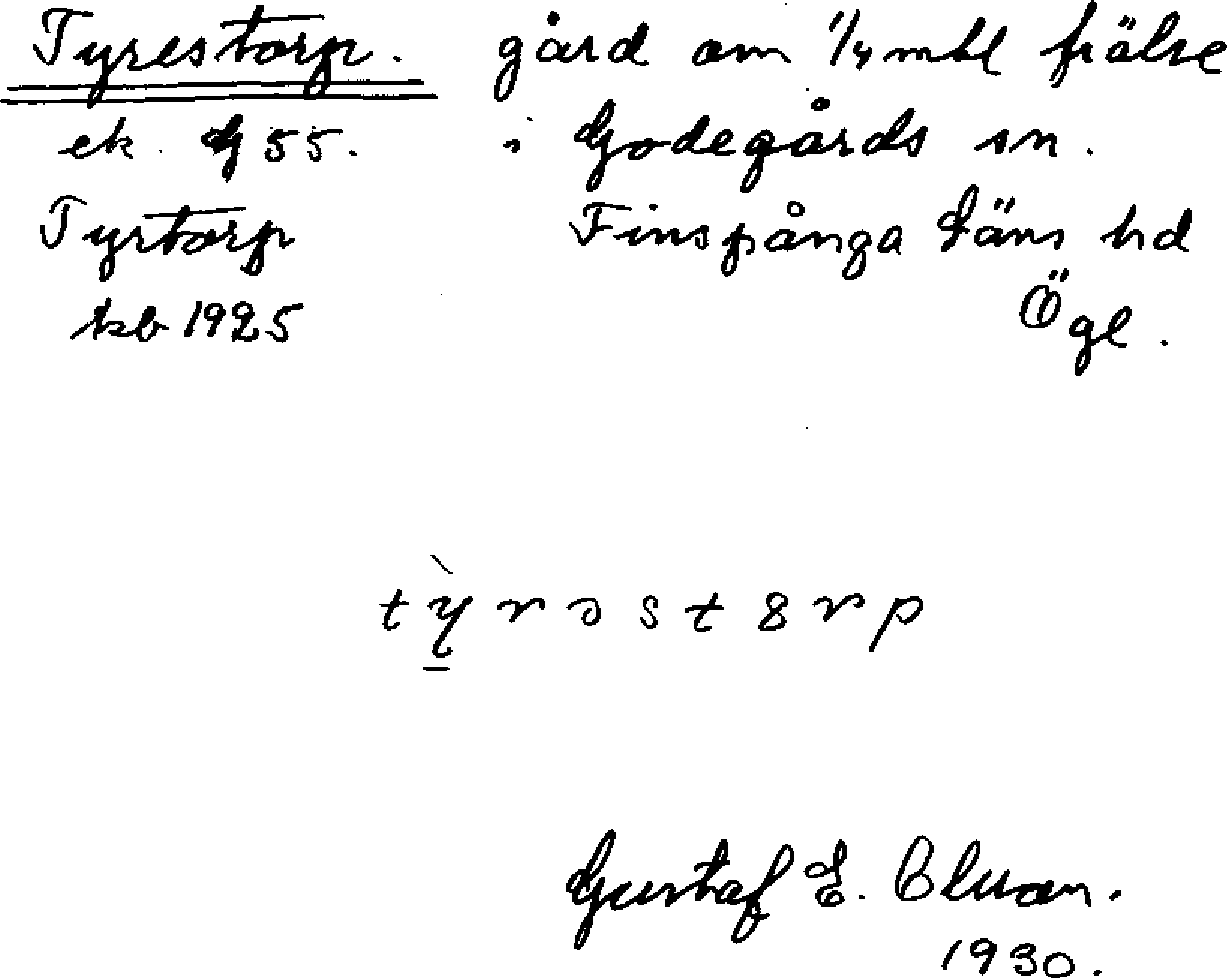 Tyrestorp. gård om 1/4 mtl frälse
ek. G 55. i Godegårds sn.
Tyrtorp Finspånga Läns hd
kb 1925 Ögl.
tỳrəst8rp
Gustaf E.
1930.